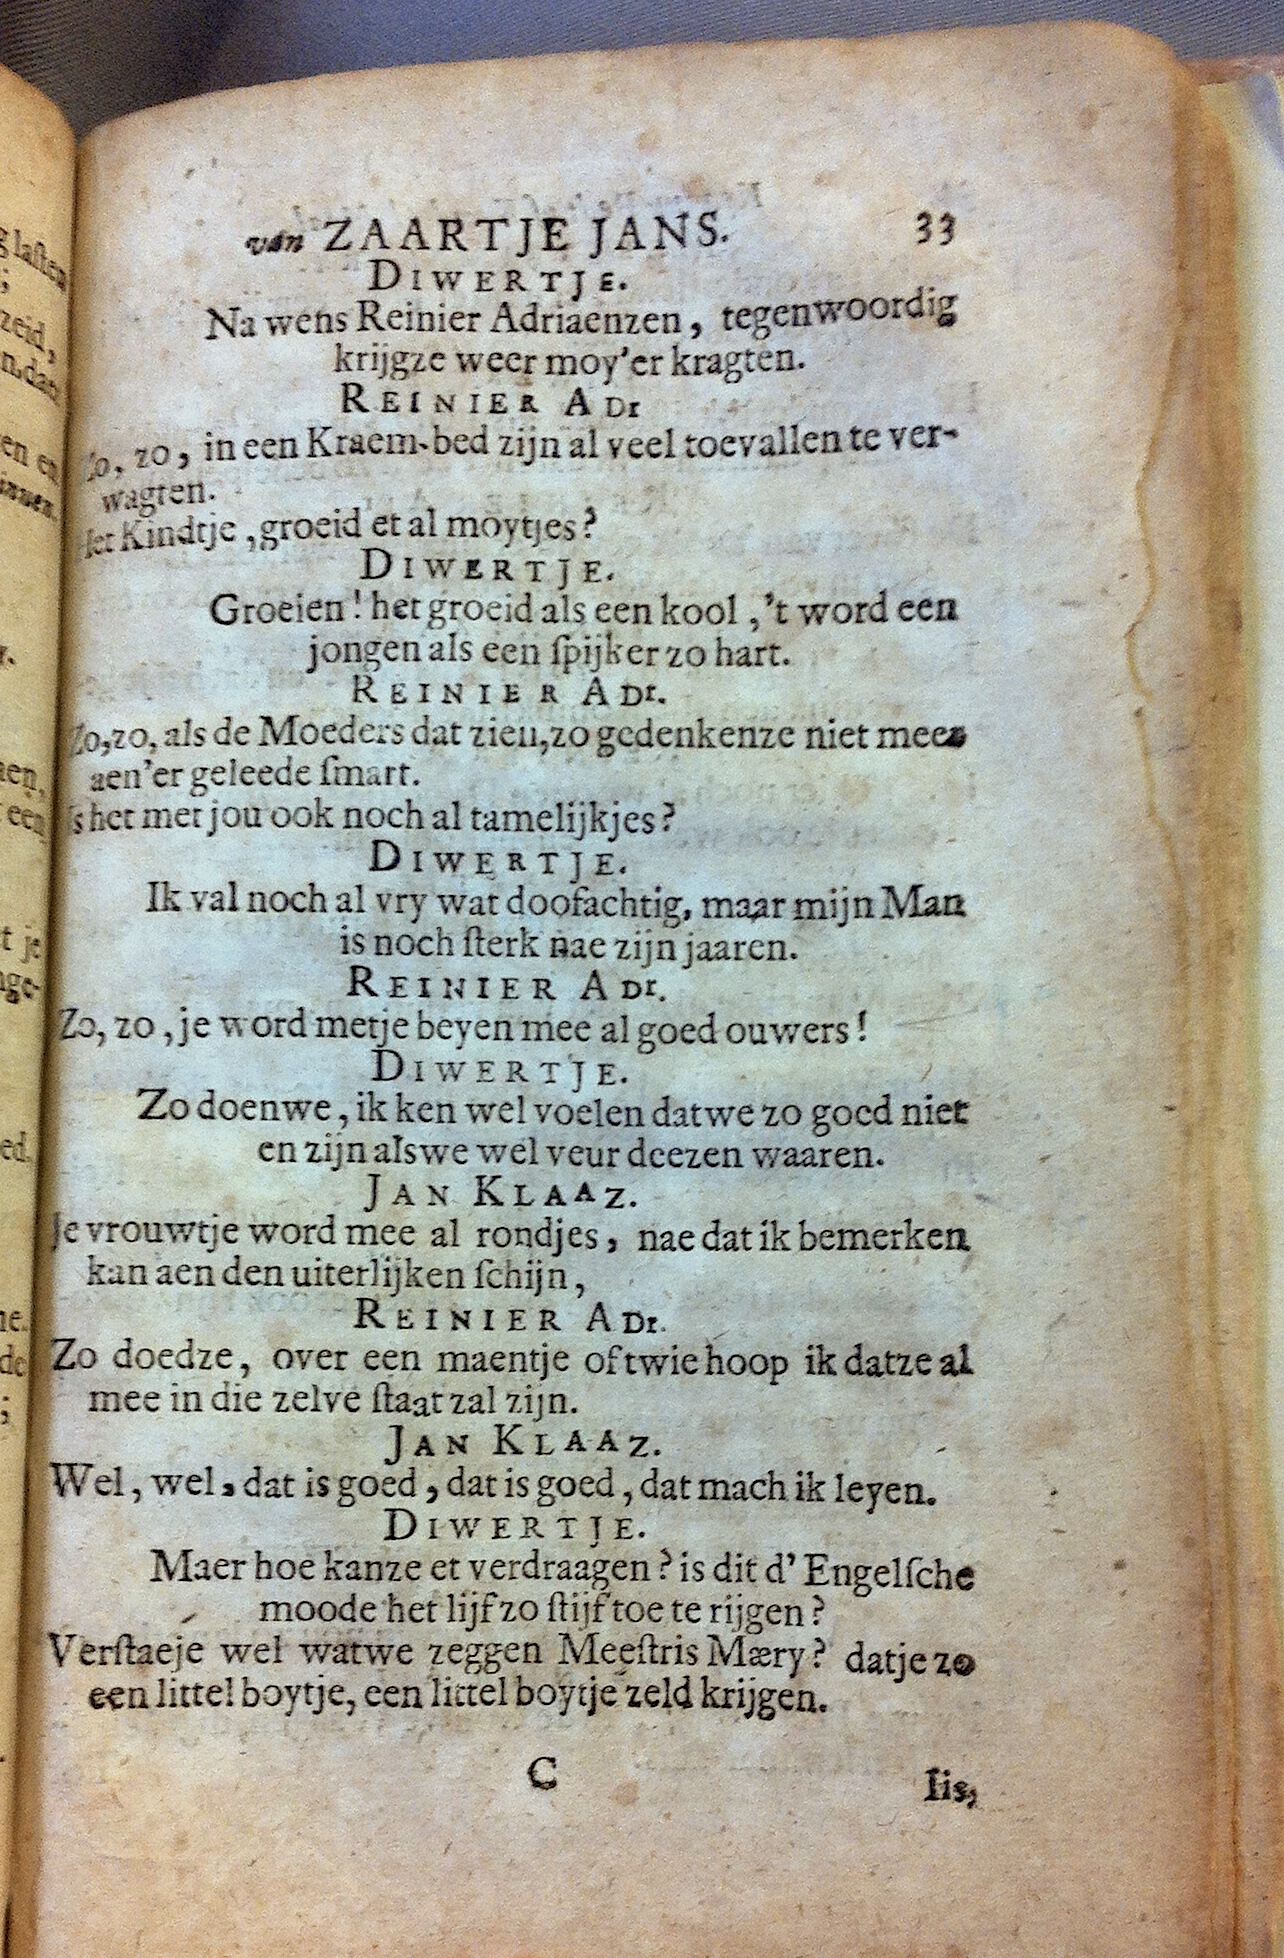 van ZAARTJE JANS. 33
DIWERTJE.
Na wens Reinier Adriaenzen, tegenwoordig
krijgze weer moy'er kragten.
REINIER ADr
Zo, zo, in een Kraem-bed zijn al veel toevallen te ver-
wagten.
Het Kindtje, groeid et al moytjes?
DIWERTJE.
Groeien! het groeid als een kool, 't word een
jongen als een ſpijker zo hart.
REINIER ADr.
Zo, zo, als de Moeders dat zien, zo gedenkenze niet meer
aen'er geleede ſmart.
Is het met jou ook noch al tamelijkjes?
DIWERTJE.
Ik val noch al vry wat doofachtig, maar mijn Man
is noch ſterk nae zijn jaaren.
REINIER ADr.
Zo, zo, je word metje beyen mee al goed ouwers!
DIWERTJE.
Zo doenwe, ik ken wel voelen datwe zo goed niet
en zijn alswe wel veur deezen waaren.
JAN KLAAZ.
Je vrouwtje word mee al rondjes, nae dat ik bemerken
kan aen den uiterlijken ſchijn,
REINIER ADr.
Zo doedze, over een maentje of twie hoop ik datze al
mee in die zelve ſtaat zal zijn.
JAN KLAAZ.
Wel, wel, dat is goed, dat is goed, dat mach ik leyen.
DIWERTJE.
Maer hoe kanze et verdraagen? is dit d' Engelſche
moode het lijf zo ſtijf toe te rijgen?
Verſtaeje wel watwe zeggen Meeſtris Mæry? datje zo
een littel boytje, een littel boytje zeld krijgen.
C Iis,